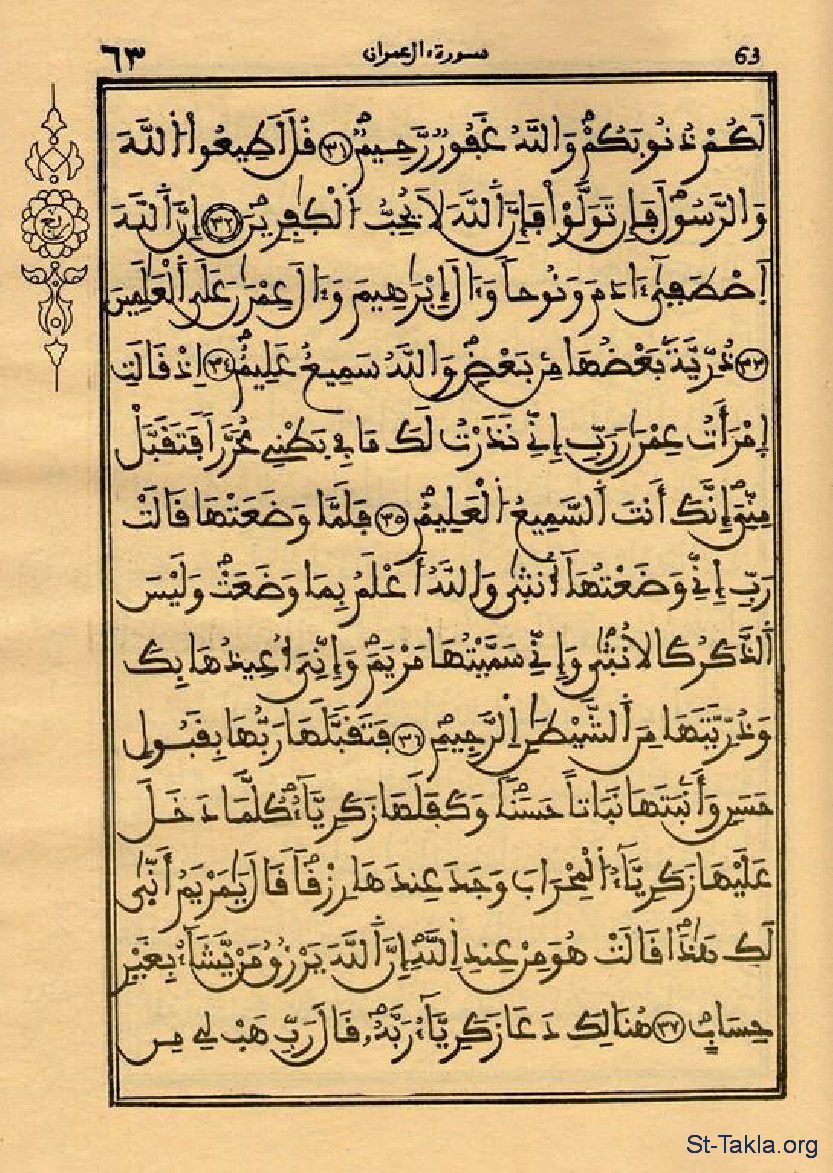 ٦٣ سورة ءال عمران 63
لَكُمْ ذُنُوبَكُمْ وَاللَّهُ غَفُورٌ رَّحِيمٌ ٣١ قُلْ أَطِيعُوا اللَّهَ
وَالرَّسُولَ فَإِن تَوَلَّوْا فَإِنَّ اللَّهَ لَا يُحِبُّ الْكَٰفِرِينَ ٣٢ إِنَّ اللَّهَ
اَصْطَفَىٰ ءَادَمَ وَنُوحاً وَءَالَ إِبْرَٰهِيمَ وَءَالَ عِمْرَٰنَ عَلَى الْعَٰلَمِينَ
٣٣ ذُرِّيَّةَۢ بَعْضُهَا مِنۢ بَعْضٍ وَاللَّهُ سَمِيعٌ عَلِيمٌ ٣٤ اِذْ قَالَتِ
اِمْرَأَتُ عِمْرَٰنَ رَبِّ إِنِّي نَذَرْتُ لَكَ مَا فِي بَطْنِي مُحَرَّراً فَتَقَبَّلْ
مِنِّيَ إِنَّكَ أَنتَ السَّمِيعُ الْعَلِيمُ ٣٥ فَلَمَّا وَضَعَتْهَا قَالَتْ
رَبِّ إِنِّي وَضَعْتُهَا أُنثَىٰ وَاللَّهُ أَعْلَمُ بِمَا وَضَعَتْ وَلَيْسَ
الذَّكَرُ كَالْأُنثَىٰ وَإِنِّي سَمَّيْتُهَا مَرْيَمَ وَإِنِّيَ أُعِيذُهَا بِكَ
وَذُرِّيَّتَهَا مِنَ الشَّيْطَٰنِ الرَّجِيمِ ٣٦ فَتَقَبَّلَهَا رَبُّهَا بِقَبُولٍ
حَسَنٍ وَأَنۢبَتَهَا نَبَاتاً حَسَناً وَكَفَلَهَا زَكَرِيَّآءُ كُلَّمَا دَخَلَ
عَلَيْهَا زَكَرِيَّآءُ الْمِحْرَابَ وَجَدَ عِندَهَا رِزْقاً قَالَ يَٰمَرْيَمُ أَنَّىٰ
لَكِ هَٰذَا قَالَتْ هُوَ مِنْ عِندِ اللَّهِ إِنَّ اللَّهَ يَرْزُقُ مَنْ يَّشَآءُ بِغَيْرِ
حِسَابٍ ٣٧ هُنَالِكَ دَعَا زَكَرِيَّآءُ رَبَّهُ قَالَ رَبِّ هَبْ لِي مِن
ربع
St-Takla.org